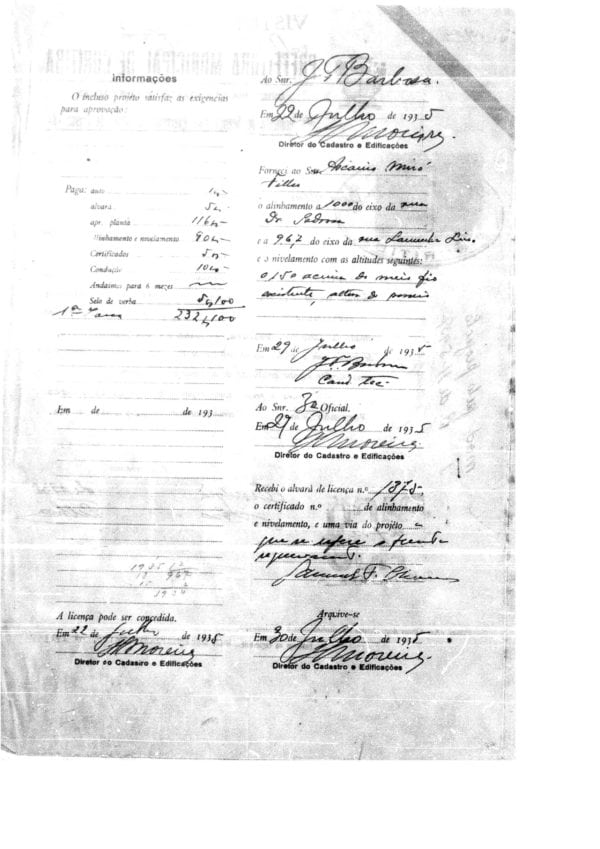 Informações
O incluso projéto satisfaz as exigencias
para aprovação:
Paga: auto 1$-
alvará 5$-
apr. planta 116$-
Alinhamento e nivelamento 90$-
Certificados 5$-
Condução 10$-
Andaimes para 6 mezes
Selo de verba 5$100
232$100
Em de de 193
A licença pode ser concedida.
Em 22 de Julho de 1935
Diretor do Cadastro e Edificações
Ao Snr. J F Barbosa.
Em 22 de Julho de 1935
Moreira
Diretor do Cadastro e Edificações
Forneci ao Snr. Ascanio Miró
Filho
o alinhamento a 1000 do eixo da rua
Dr. Pedrosa
e a 967 do eixo da rua
e o nivelamento com as altitudes seguintes:
0,150 acima do meio fio
existente,
Em 29 de Julho de 1935
J F. Barbosa
Cond Tec.
Ao Snr. 3º Oficial.
Em 27 de Julho de 1935
Moreira
Diretor do Cadastro e Edificações
Recebi o alvará de licença n.º 1875,
o certificado n.º de alinhamento
e nivelamento, e uma via do projéto a
que se refere a
Samuel F.
Arquive-se
Em 30 de Julho de 1935
Moreira
Diretor do Cadastro e Edificações